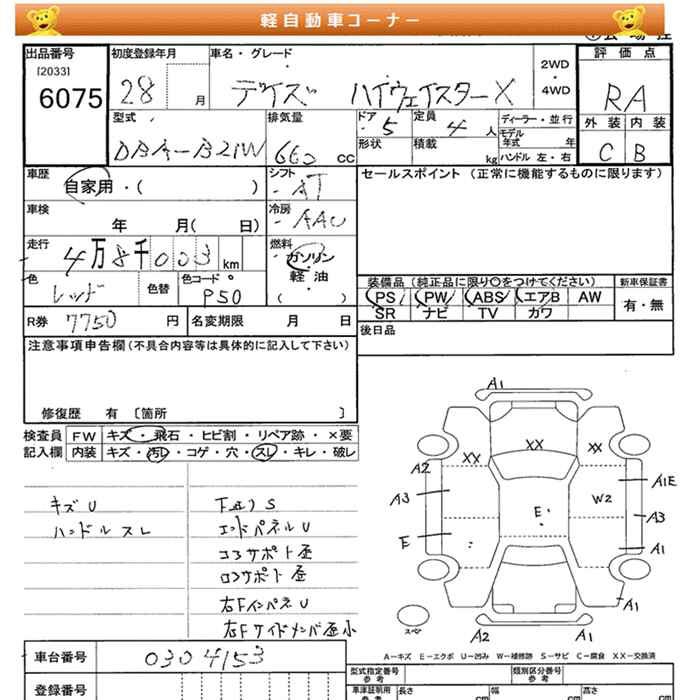 軽自動車コーナー
出品番号 初度登録年月 車名・グレード 2WD・4WD 評価点
[2033]
6075 28 月 デイズ ハイウェイスターX RA
型式 排気量 ドア 5 定員 4 人 ディーラー・並行 外装 内装
DBA-B21W 660 CC 形状 積載 kg モデル年式 年 ハンドル 左・右 C B
車歴 シフト セールスポイント (正常に機能するものに限ります)
自家用・( ) AT
車検 冷房
年 月( 日) AAC
走行 燃料
4万8千003 km ガソリン
色 色替 色コード 軽・油 装備品 (純正品に限り〇をつけてください) 新車保証書
レッド P50 ( ) PS PW ABS エアB AW 有・無
SR ナビ TV カワ
R券 7750 円 名変期限 月 日 後日品
注意事項申告欄(不具合内容等は具体的に記入して下さい)
修復歴 有 〔箇所 〕
検査員 FW キズ・飛石・ヒビ割・リペア跡・×要
記入欄 内装 キズ・汚レ・コゲ・穴・スレ・キレ・破レ
キズU
ハンドルスレ
下廻りS
エンドパネルU
コアサポート歪
ロアサポート歪
右FインパネU
右Fサイドメンバ歪小
A1
XX XX XX
A2 A1E
A3 E W2 A3
E A1
A1
A2 A1
A-キズ E-エクボ U-凹み W-補修跡 S-サビ C-腐食 XX-交換済
車台番号 0304153
登録番号
型式指定番号 参考 類別区分番号 参考
車庫証明用 参考 長さ cm 幅 cm 高さ cm